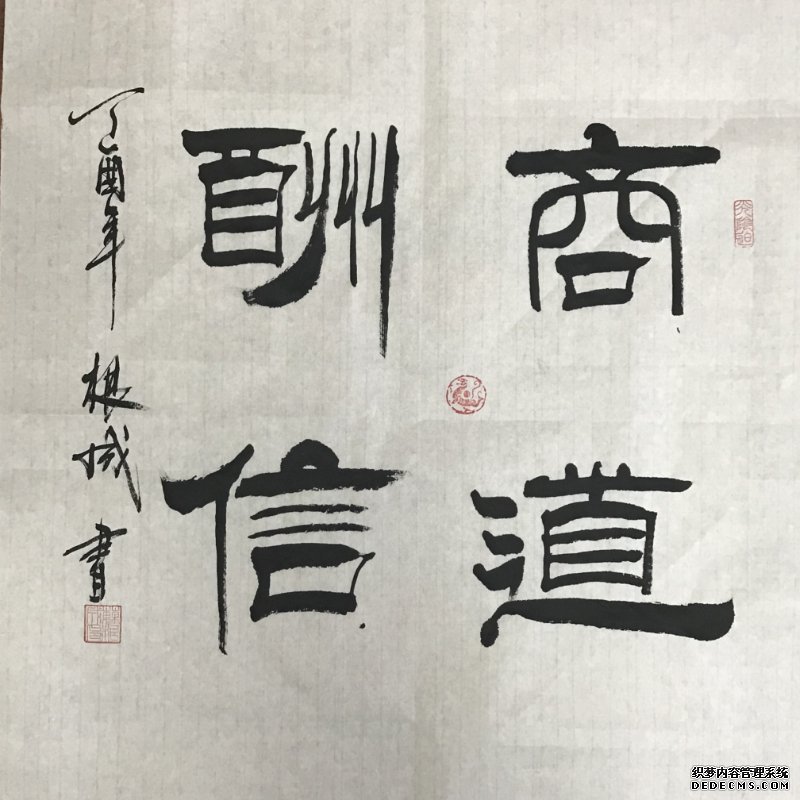 商道
酬信
丁酉年 根城 書
织梦内容管理系统
DEDECMS.COM